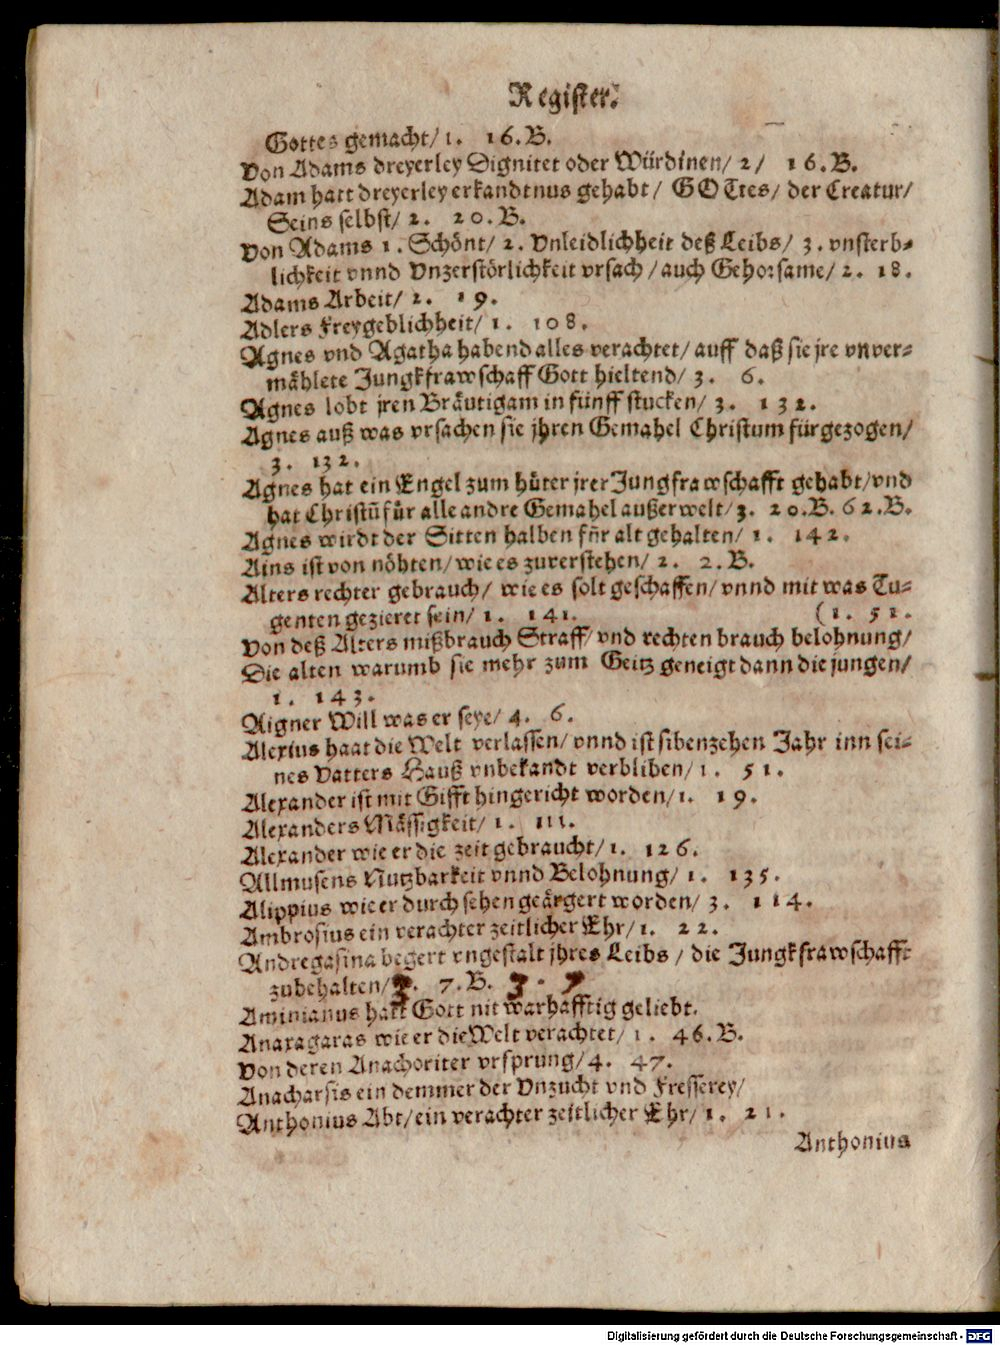 Register.
Gottes gemacht/ 1. 16. B.
Von Adams dreyerley Dignitet oder Würdinen/ 2/ 16. B.
Adam hatt dreyerley erkandtnus gehabt/ GOTtes/ der Creatur/
Seins selbst/ 2. 20. B.
Von Adams 1. Schönt/ 2. Vnleidlichheit deß Leibs/ 3. vnsterb-
lichkeit vnnd Vnzerstörlichkeit vrsach/ auch Gehorsame/ 2. 18.
Adams Arbeit/ 2. 19.
Adlers Freygeblichheit/ 1. 108.
Agnes vnd Agatha habend alles verachtet/ auff daß sie jre vnver-
mählete Jungkfrawschaff Gott hieltend/ 3. 6.
Agnes lobt jren Bräutigam in fünff stucken/ 3. 132.
Agnes auß was vrsachen sie jhren Gemahel Christum fürgezogen/
3. 132.
Agnes hat ein Engel zum hüter jrer Jungfrawschafft gehabt/ vnd
hat Christū für alle andre Gemahel außerwelt/ 3. 20. B. 62. B.
Agnes wirdt der Sitten halben für alt gehalten/ 1. 142.
Ains ist von nöhten/ wie es zuverstehen/ 2. 2. B.
Alters rechter gebrauch/ wie es solt geschaffen/ vnnd mit was Tu-
genten gezieret sein/ 1. 141. (1. 51.
Von deß Alters mißbrauch Straff/ vnd rechten brauch belohnung/
Die alten warumb sie mehr zum Geitz geneigt dann die jungen/
1. 143.
Aigner Will was er seye/ 4. 6.
Alexius haat die Welt verlassen/ vnnd ist sibenzehen Jahr inn sei-
nes Vatters Hauß vnbekandt verbliben/ 1. 51.
Alexander ist mit Gifft hingericht worden/ 1. 19.
Alexanders Mässigkeit/ 1. 111.
Alexander wie er die zeit gebraucht/ 1. 126.
Allmusens Nutzbarkeit vnnd Belohnung/ 1. 135.
Alippius wie er durch sehen geärgert worden/ 3. 114.
Ambrosius ein verachter zeitlicher Ehr/ 1. 22.
Andregasina begert vngestalt jhres Leibs/ die Jungkfrawschafft
zubehalten/ 3. 7. B. 3. 7
Aminianus hatt Gott nit warhafftig geliebt.
Anaxagaras wie er die Welt verachtet/ 1. 46. B.
Von deren Anachoriter vrsprung/ 4. 47.
Anacharsis ein demmer der Vnzucht vnd Fresserey/
Anthonius Abt/ ein verachter zeitlicher Ehr/ 1. 21.
Anthonius
Digitalisierung gefördert durch die Deutsche Forschungsgemeinschaft - DFG